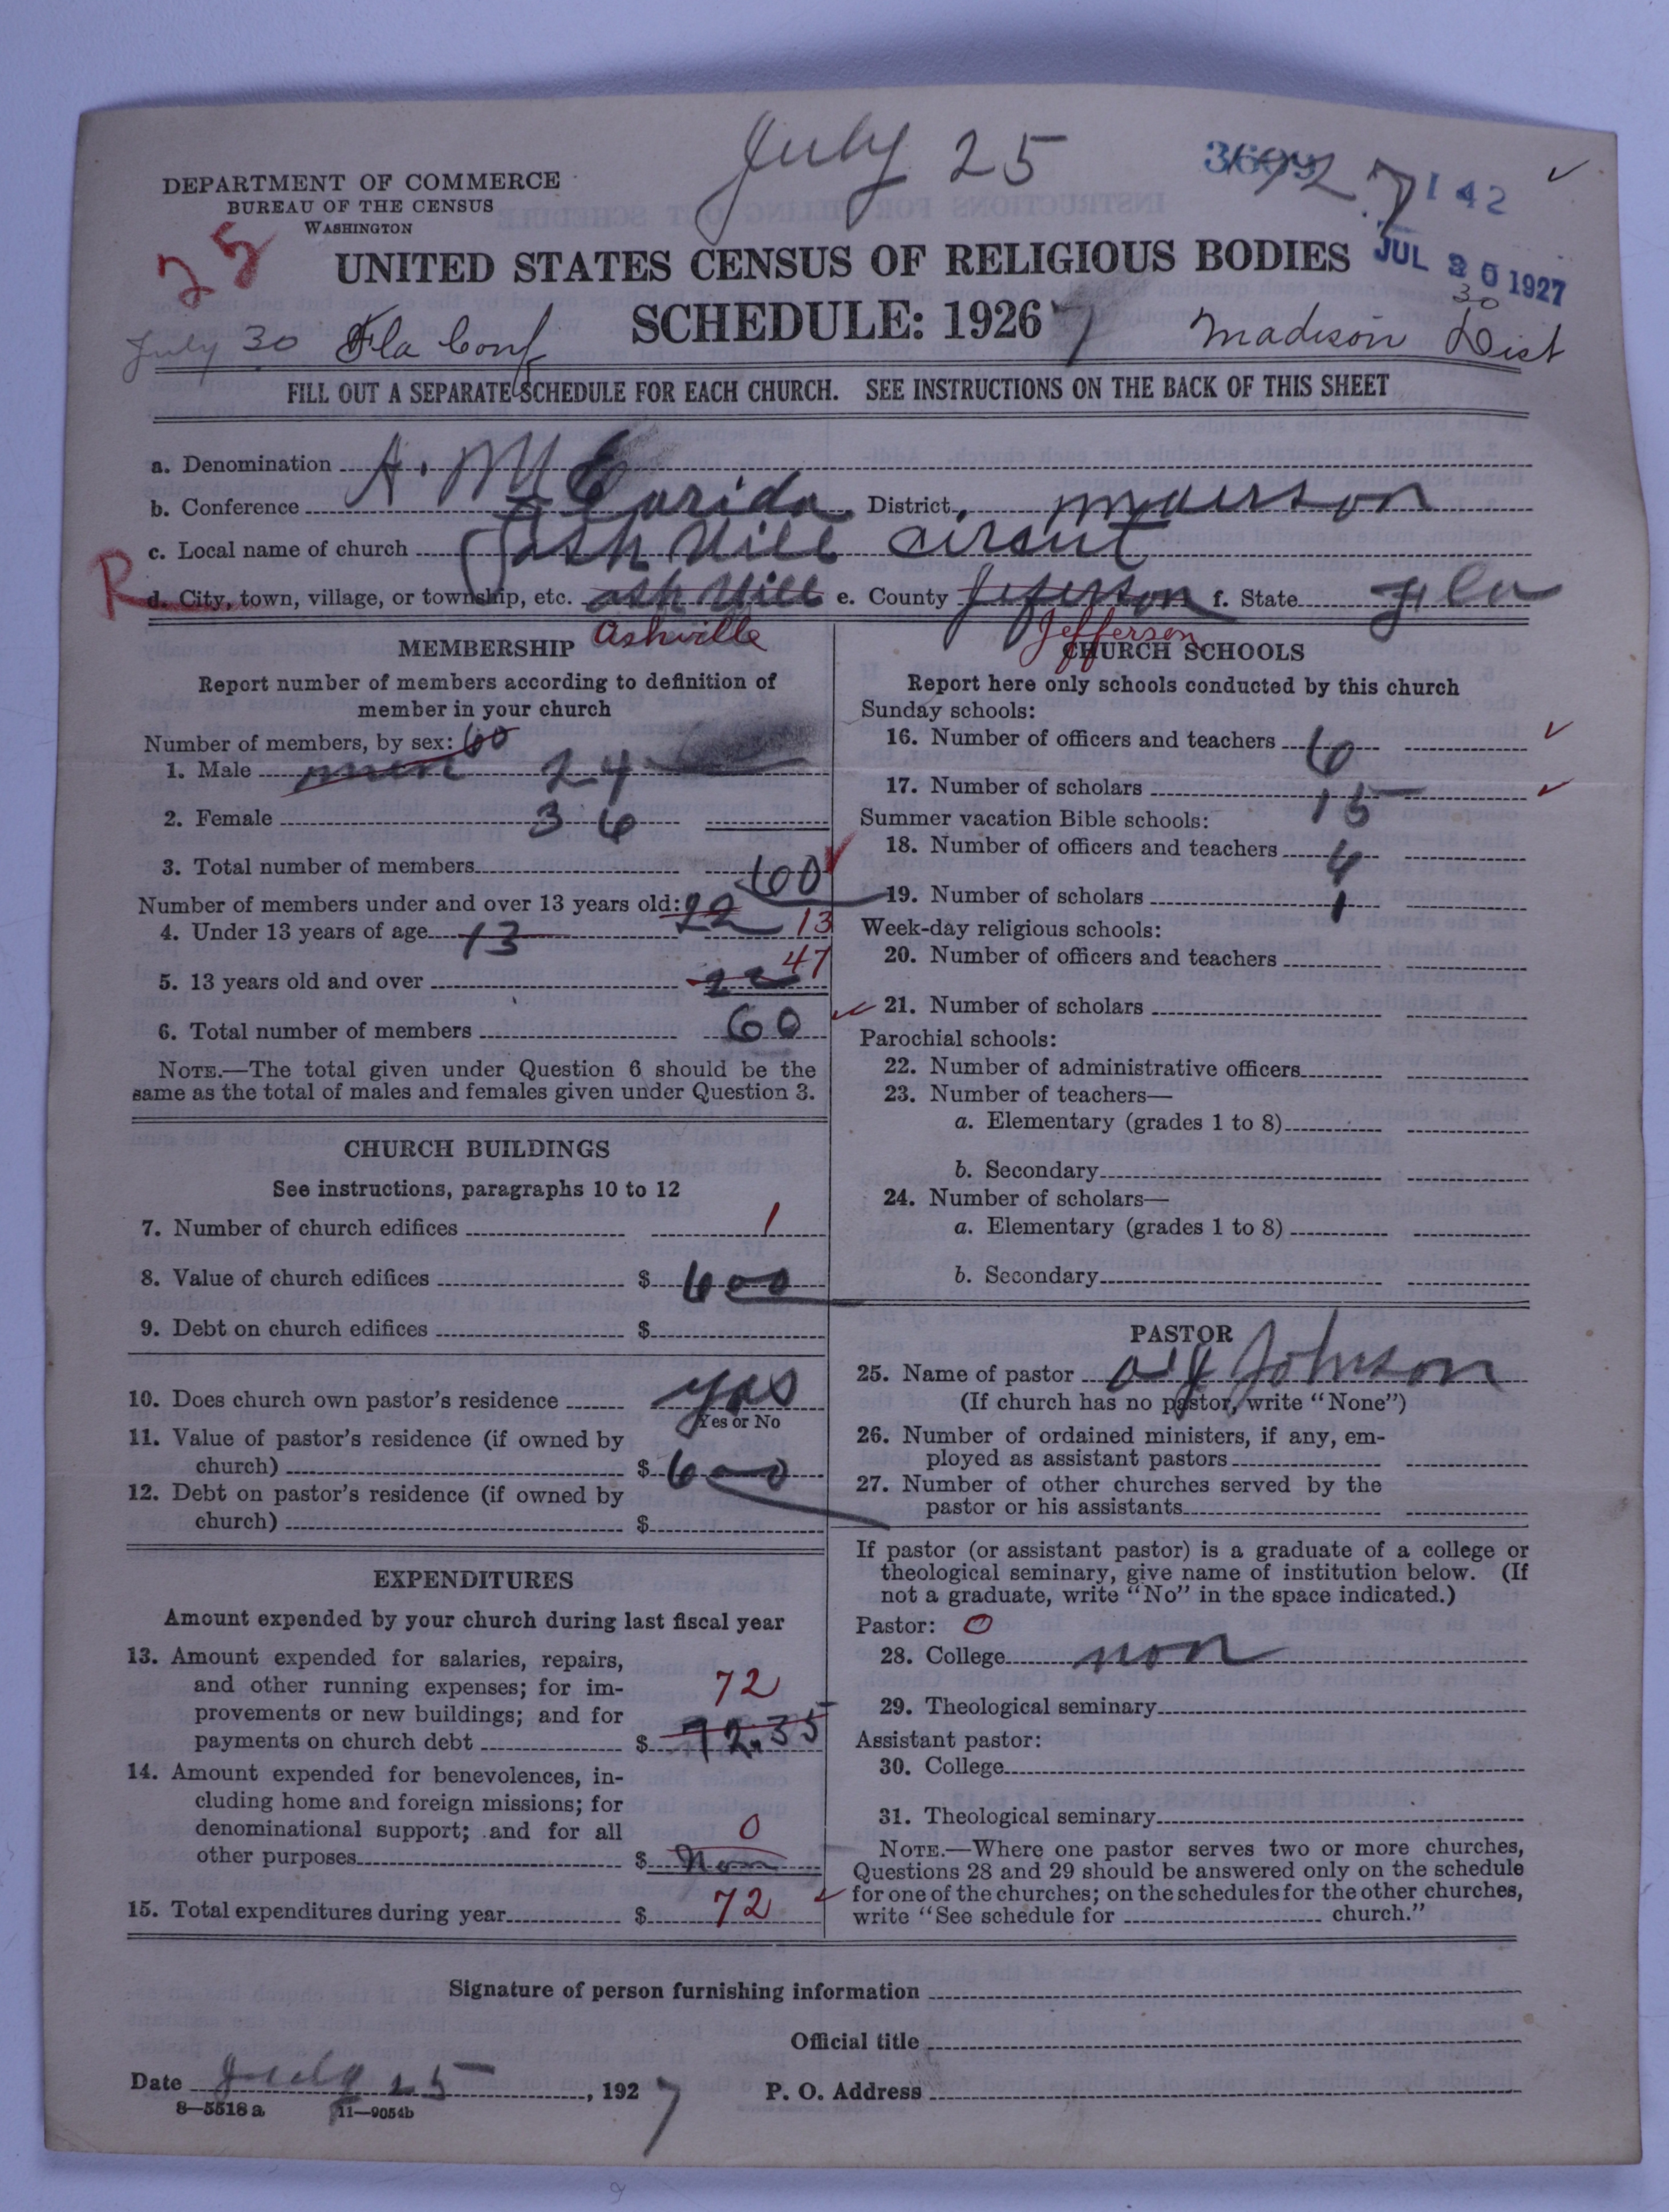 July 25
3609 1927 142
DEPARTMENT OF COMMERCE
BUREAU OF THE CENSUS
WASHINGTON
25
UNITED STATES CENSUS OF RELIGIOUS BODIES
JUL 30 1927
30
SCHEDULE: 1926 7
July 30 Fla Conf
Madison Dist
FILL OUT A SEPARATE SCHEDULE FOR EACH CHURCH. SEE INSTRUCTIONS ON THE BACK OF THIS SHEET
a. Denomination A. M E
b. Conference Florida District
c. Local name of church Ash Vill circut
R
d. City, town, village, or township, etc. ash Vill e. County Jeferson f. State Fla
Ashville
Jefferson
MEMBERSHIP
Report number of members according to definition of
member in your church
Number of members, by sex: 60
1. Male men 24
2. Female 36
3. Total number of members 60
Number of members under and over 13 years old: 22
4. Under 13 years of age 13 13
5. 13 years old and over 47
6. Total number of members 60
NOTE.—The total given under Question 6 should be the
same as the total of males and females given under Question 3.
CHURCH BUILDINGS
See instructions, paragraphs 10 to 12
7. Number of church edifices 1
8. Value of church edifices $ 600
9. Debt on church edifices $
10. Does church own pastor's residence yas
Yes or No
11. Value of pastor's residence (if owned by
church) $ 600
12. Debt on pastor's residence (if owned by
church) $
EXPENDITURES
Amount expended by your church during last fiscal year
13. Amount expended for salaries, repairs,
and other running expenses; for im- 72
provements or new buildings; and for
payments on church debt $ 72.35
14. Amount expended for benevolences, in-
cluding home and foreign missions; for
denominational support; and for all 0
other purposes $ non
15. Total expenditures during year $ 72
CHURCH SCHOOLS
Report here only schools conducted by this church
Sunday schools:
16. Number of officers and teachers 6
17. Number of scholars 15
Summer vacation Bible schools:
18. Number of officers and teachers 4
19. Number of scholars 1
Week-day religious schools:
20. Number of officers and teachers
21. Number of scholars
Parochial schools:
22. Number of administrative officers
23. Number of teachers—
a. Elementary (grades 1 to 8)
b. Secondary
24. Number of scholars—
a. Elementary (grades 1 to 8)
b. Secondary
PASTOR
25. Name of pastor Johnson
(If church has no pastor, write "None")
26. Number of ordained ministers, if any, em-
ployed as assistant pastors
27. Number of other churches served by the
pastor or his assistants
If pastor (or assistant pastor) is a graduate of a college or
theological seminary, give name of institution below. (If
not a graduate, write "No" in the space indicated.)
Pastor: 0
28. College non
29. Theological seminary
Assistant pastor:
30. College
31. Theological seminary
NOTE.—Where one pastor serves two or more churches,
Questions 28 and 29 should be answered only on the schedule
for one of the churches; on the schedules for the other churches,
write "See schedule for church."
Signature of person furnishing information
Official title
Date July 25, 1927 P. O. Address
8—5518 a 11—9054b